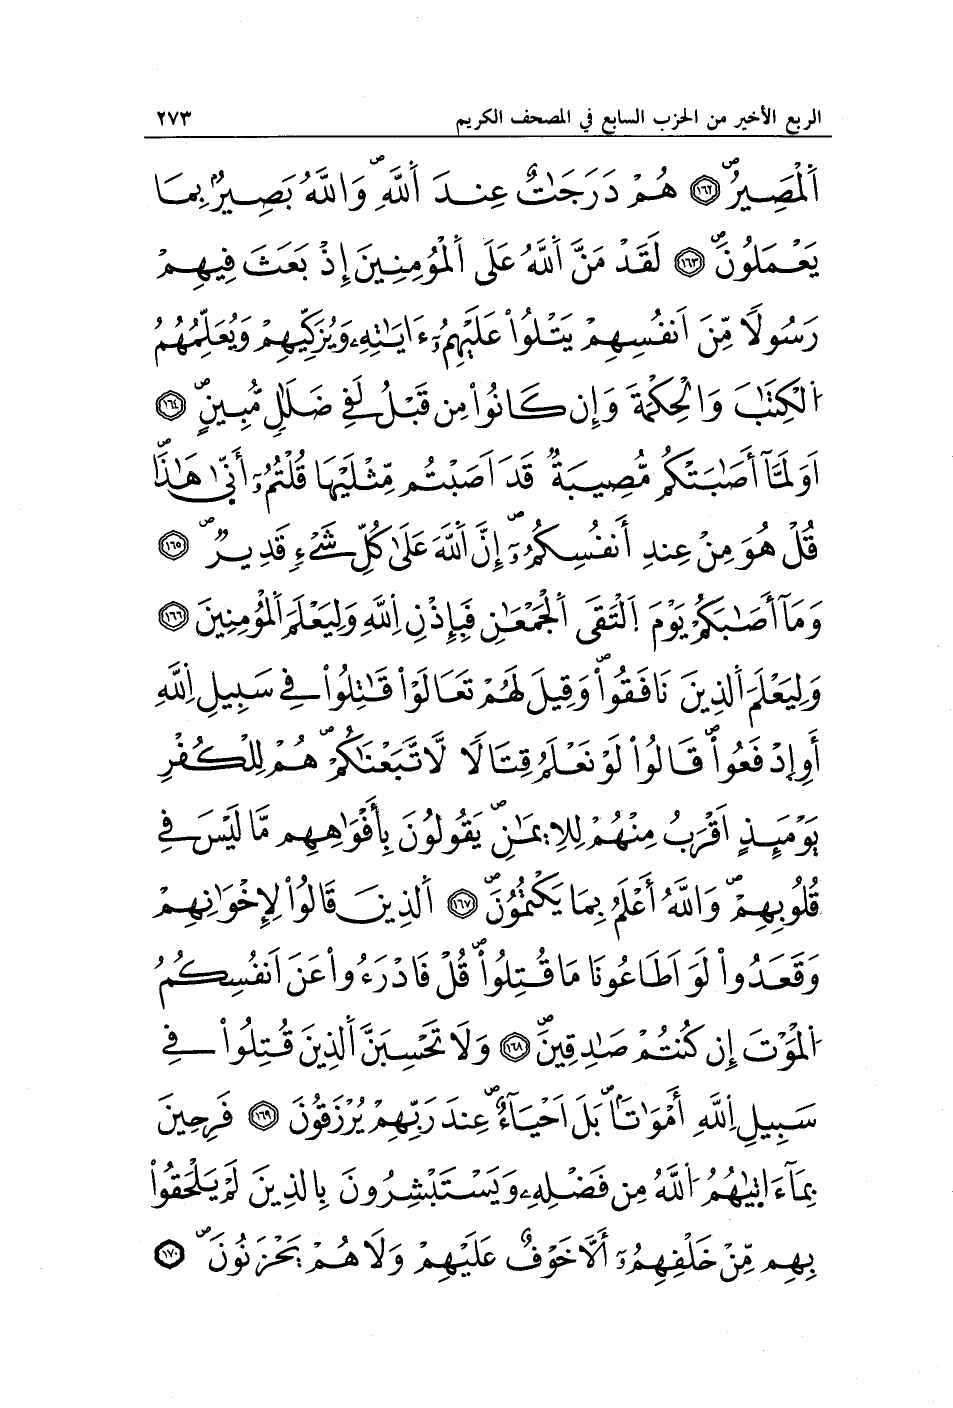 الربع الأخير من الحزب السابع في المصحف الكريم ٢٧٣
اَ۬لْمَصِيرُۖ ١٦٢ هُمْ دَرَجَٰتٌ عِندَ اَ۬للَّهِۖ وَاللَّهُ بَصِيرُۢ بِمَا
يَعْمَلُونَۖ ١٦٣ لَقَدْ مَنَّ اَ۬للَّهُ عَلَى اَ۬لْمُؤْمِنِينَ إِذْ بَعَثَ فِيهِمْ
رَسُولًا مِّنَ اَنفُسِهِمْ يَتْلُواْ عَلَيْهِمُۥٓ ءَايَٰتِهِۦ وَيُزَكِّيهِمْ وَيُعَلِّمُهُمُ
اُ۬لْكِتَٰبَ وَالْحِكْمَةَ وَإِن كَانُواْ مِن قَبْلُ لَفِے ضَلَٰلٍ مُّبِينٍۖ ١٦٤
اَوَلَمَّآ أَصَٰبَتْكُم مُّصِيبَةٌۭ قَدَ اَصَبْتُم مِّثْلَيْهَا قُلْتُمُۥٓ أَنّ۪ىٰ هَٰذَاۖ
قُلْ هُوَ مِنْ عِندِ أَنفُسِكُمُۥٓۖ إِنَّ اَ۬للَّهَ عَلَىٰ كُلِّ شَےْءٍ قَدِيرٌۖ ١٦٥
وَمَآ أَصَٰبَكُمْ يَوْمَ اَ۪لْتَقَى اَ۬لْجَمْعَٰنِ فَبِإِذْنِ اِ۬للَّهِ وَلِيَعْلَمَ اَ۬لْمُؤْمِنِينَ ١٦٦
وَلِيَعْلَمَ اَ۬لذِينَ نَافَقُواْۖ وَقِيلَ لَهُمْ تَعَالَوْاْ قَٰتِلُواْ فِے سَبِيلِ اِ۬للَّهِ
أَوِ اِ۪دْفَعُواْۖ قَالُواْ لَوْ نَعْلَمُ قِتَالًا لَّاتَّبَعْنَٰكُمْۖ هُمْ لِلْكُفْرِ
يَوْمَئِذٍ اَقْرَبُ مِنْهُمْ لِلِايمَٰنِۖ يَقُولُونَ بِأَفْوَٰهِهِم مَّا لَيْسَ فِے
قُلُوبِهِمْۖ وَاللَّهُ أَعْلَمُ بِمَا يَكْتُمُونَۖ ١٦٧ اَ۬لذِينَ قَالُواْ لِإِخْوَٰنِهِمْ
وَقَعَدُواْ لَوَ اَطَاعُونَا مَا قُتِلُواْۖ قُلْ فَادْرَءُواْ عَنَ اَنفُسِكُمُ
اُ۬لْمَوْتَ إِن كُنتُمْ صَٰدِقِينَۖ ١٦٨ وَلَا تَحْسِبَنَّ اَ۬لذِينَ قُتِلُواْ فِے
سَبِيلِ اِ۬للَّهِ أَمْوَٰتًاۖ بَلَ اَحْيَآءٌۖ عِندَ رَبِّهِمْ يُرْزَقُونَ ١٦٩ فَرِحِينَ
بِمَآ ءَات۪يٰهُمُ اُ۬للَّهُ مِن فَضْلِهِۦ وَيَسْتَبْشِرُونَ بِالذِينَ لَمْ يَلْحَقُواْ
بِهِم مِّنْ خَلْفِهِمُۥٓ أَلَّا خَوْفٌ عَلَيْهِمْ وَلَا هُمْ يَحْزَنُونَۖ ١٧٠